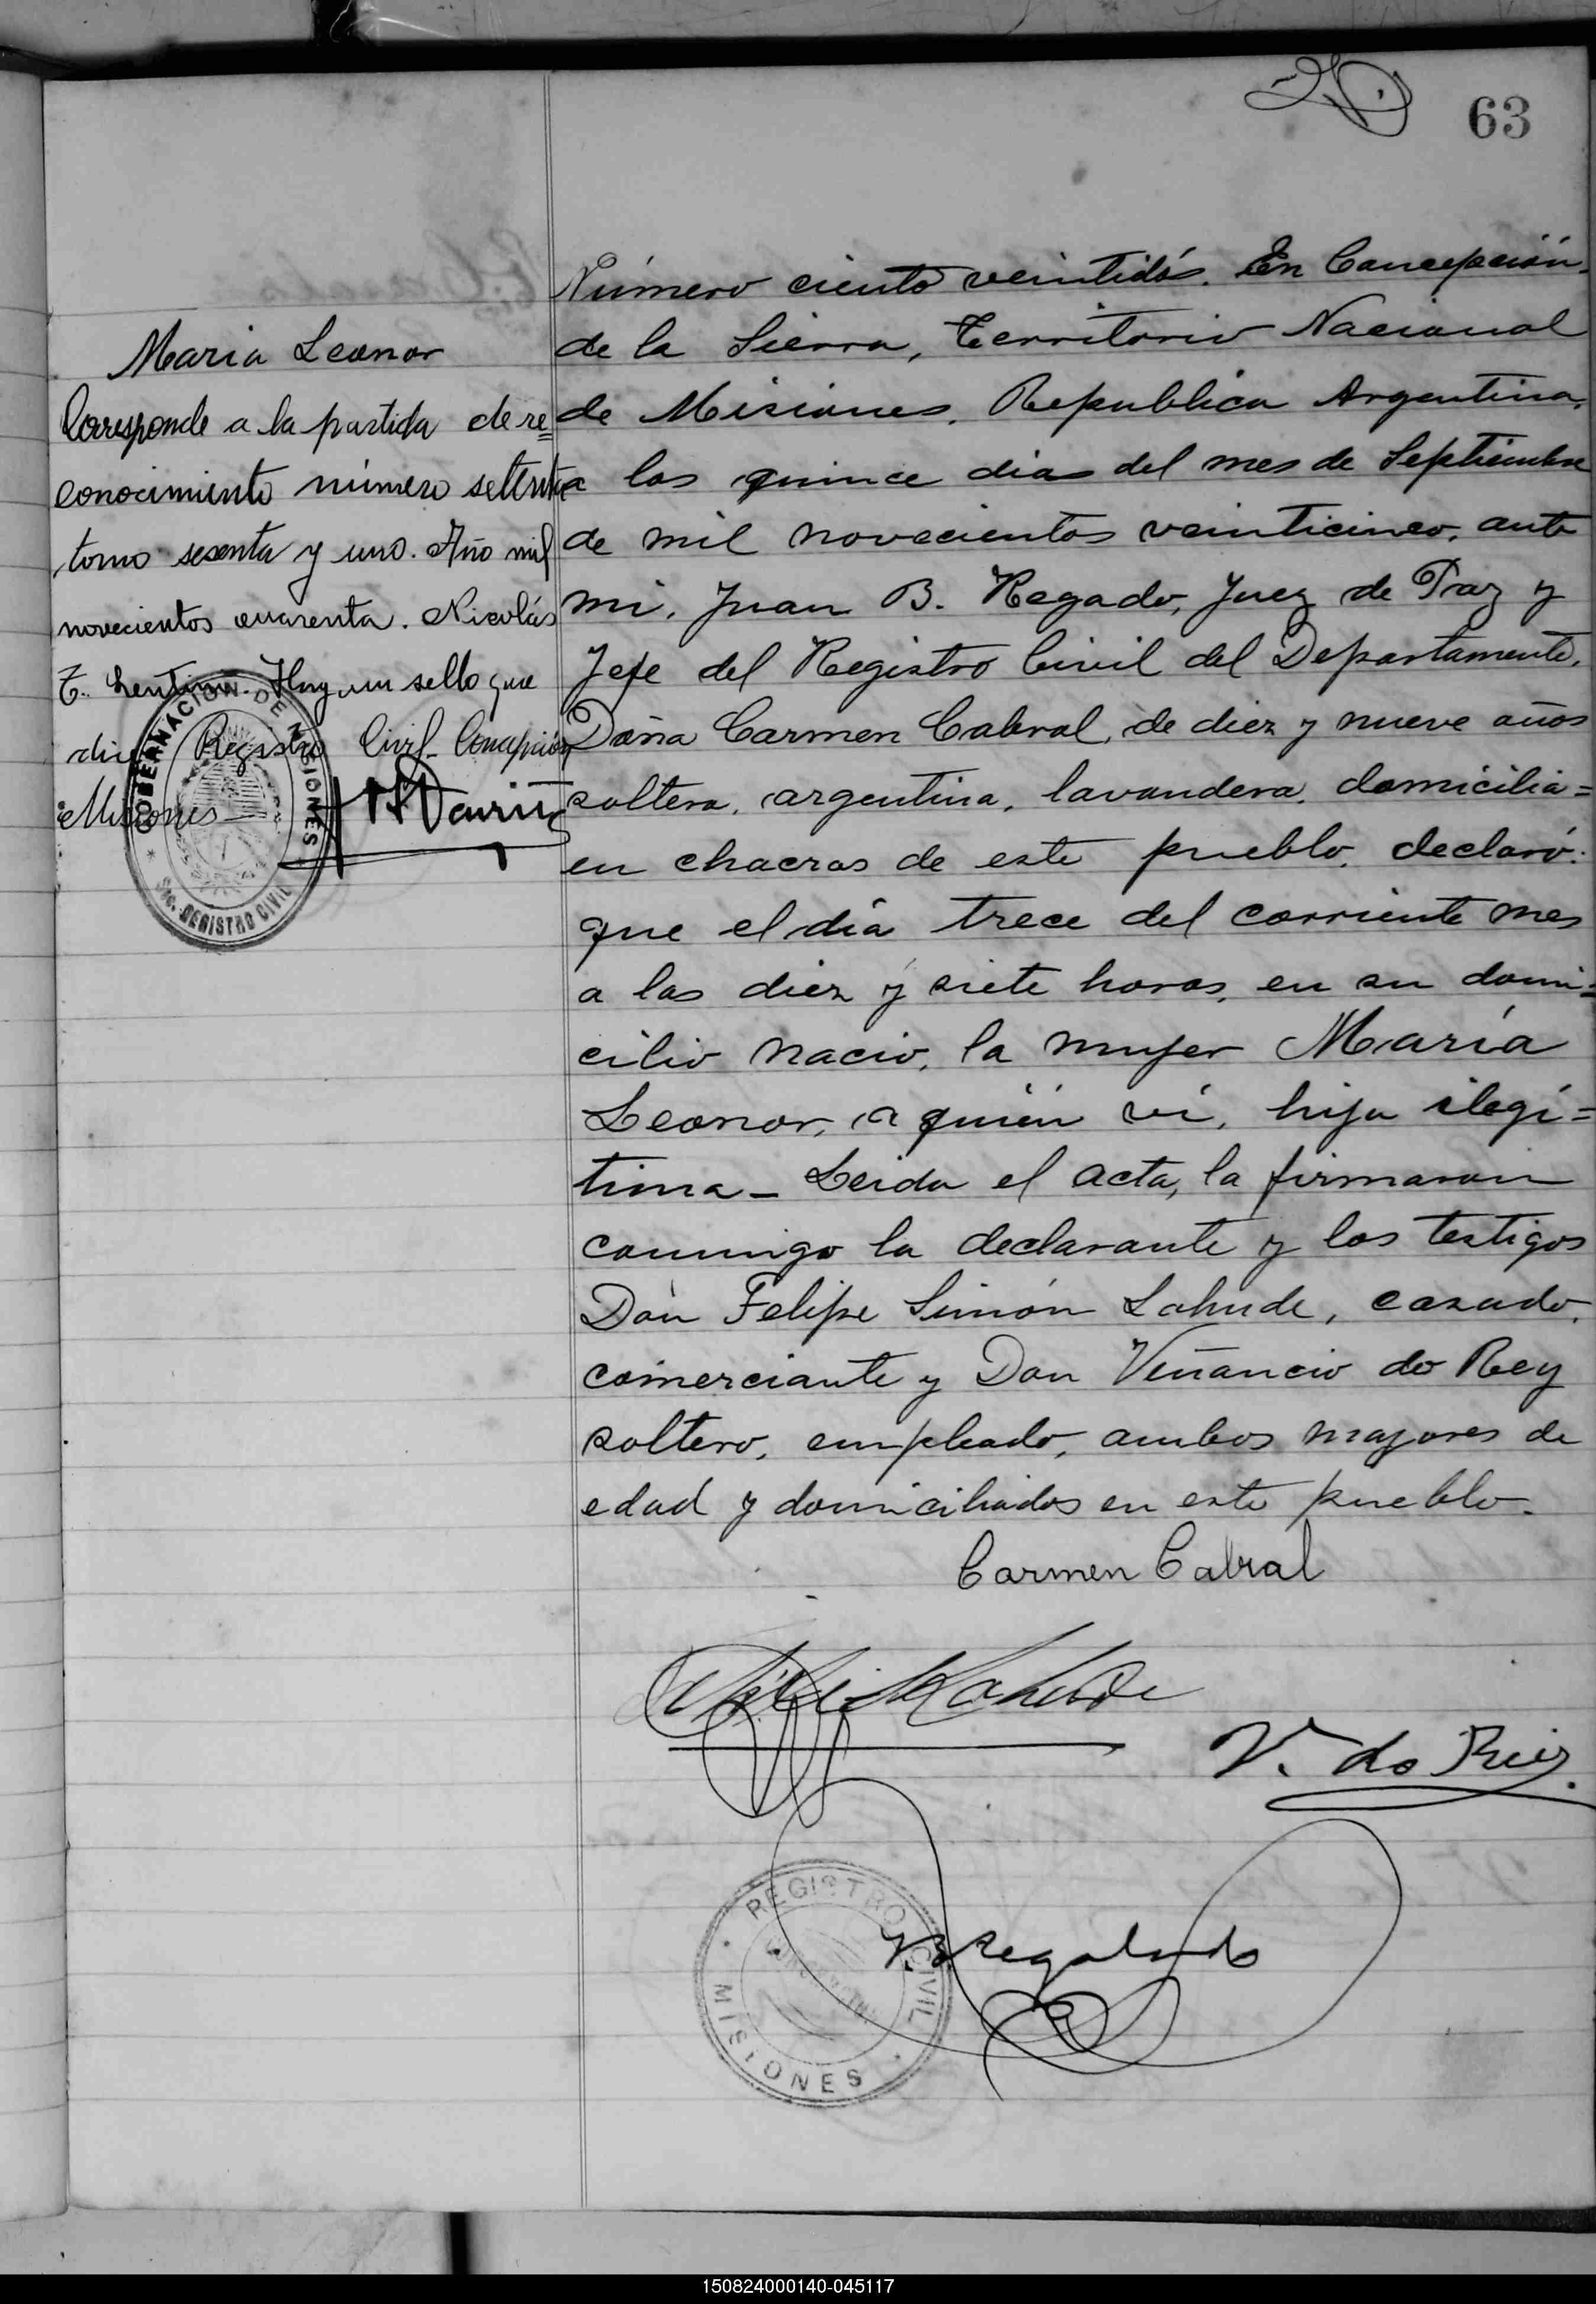 63
Maria Leonor
Corresponde a la partida de re=
conocimiento número setenta
tomo sesenta y uno. Año mil
novecientos cuarenta. Nicolás
T. Hay un sello que
dice Registro Civil - Concepción
Misiones
GOBERNACION DE MISIONES
REGISTRO CIVIL
Número ciento veintidós. En Concepción
de la Sierra, Territorio Nacional
de Misiones, Republica Argentina,
a los quince dias del mes de Septiembre
de mil novecientos veinticinco, ante
mi, Juan B. Regado, Juez de Paz y
Jefe del Registro Civil del Departamento,
Doña Carmen Cabral, de diez y nueve años
soltera, argentina, lavandera, domicilia=
en chacras de este pueblo, declaró:
que el día trece del corriente mes
a las diez y siete horas, en su domi=
cilio nacio, la mujer María
Leonor, a quién ví, hija ilegí=
tima - Leida el acta, la firmaron
conmigo la declarante y los testigos
Don Felipe Simón Lahude, casado,
comerciante y Don Venancio do Rey
soltero, empleado, ambos mayores de
edad y domiciliados en este pueblo.
Carmen Cabral
V. do Rey.
REGISTRO CIVIL
MISIONES
150824000140-045117